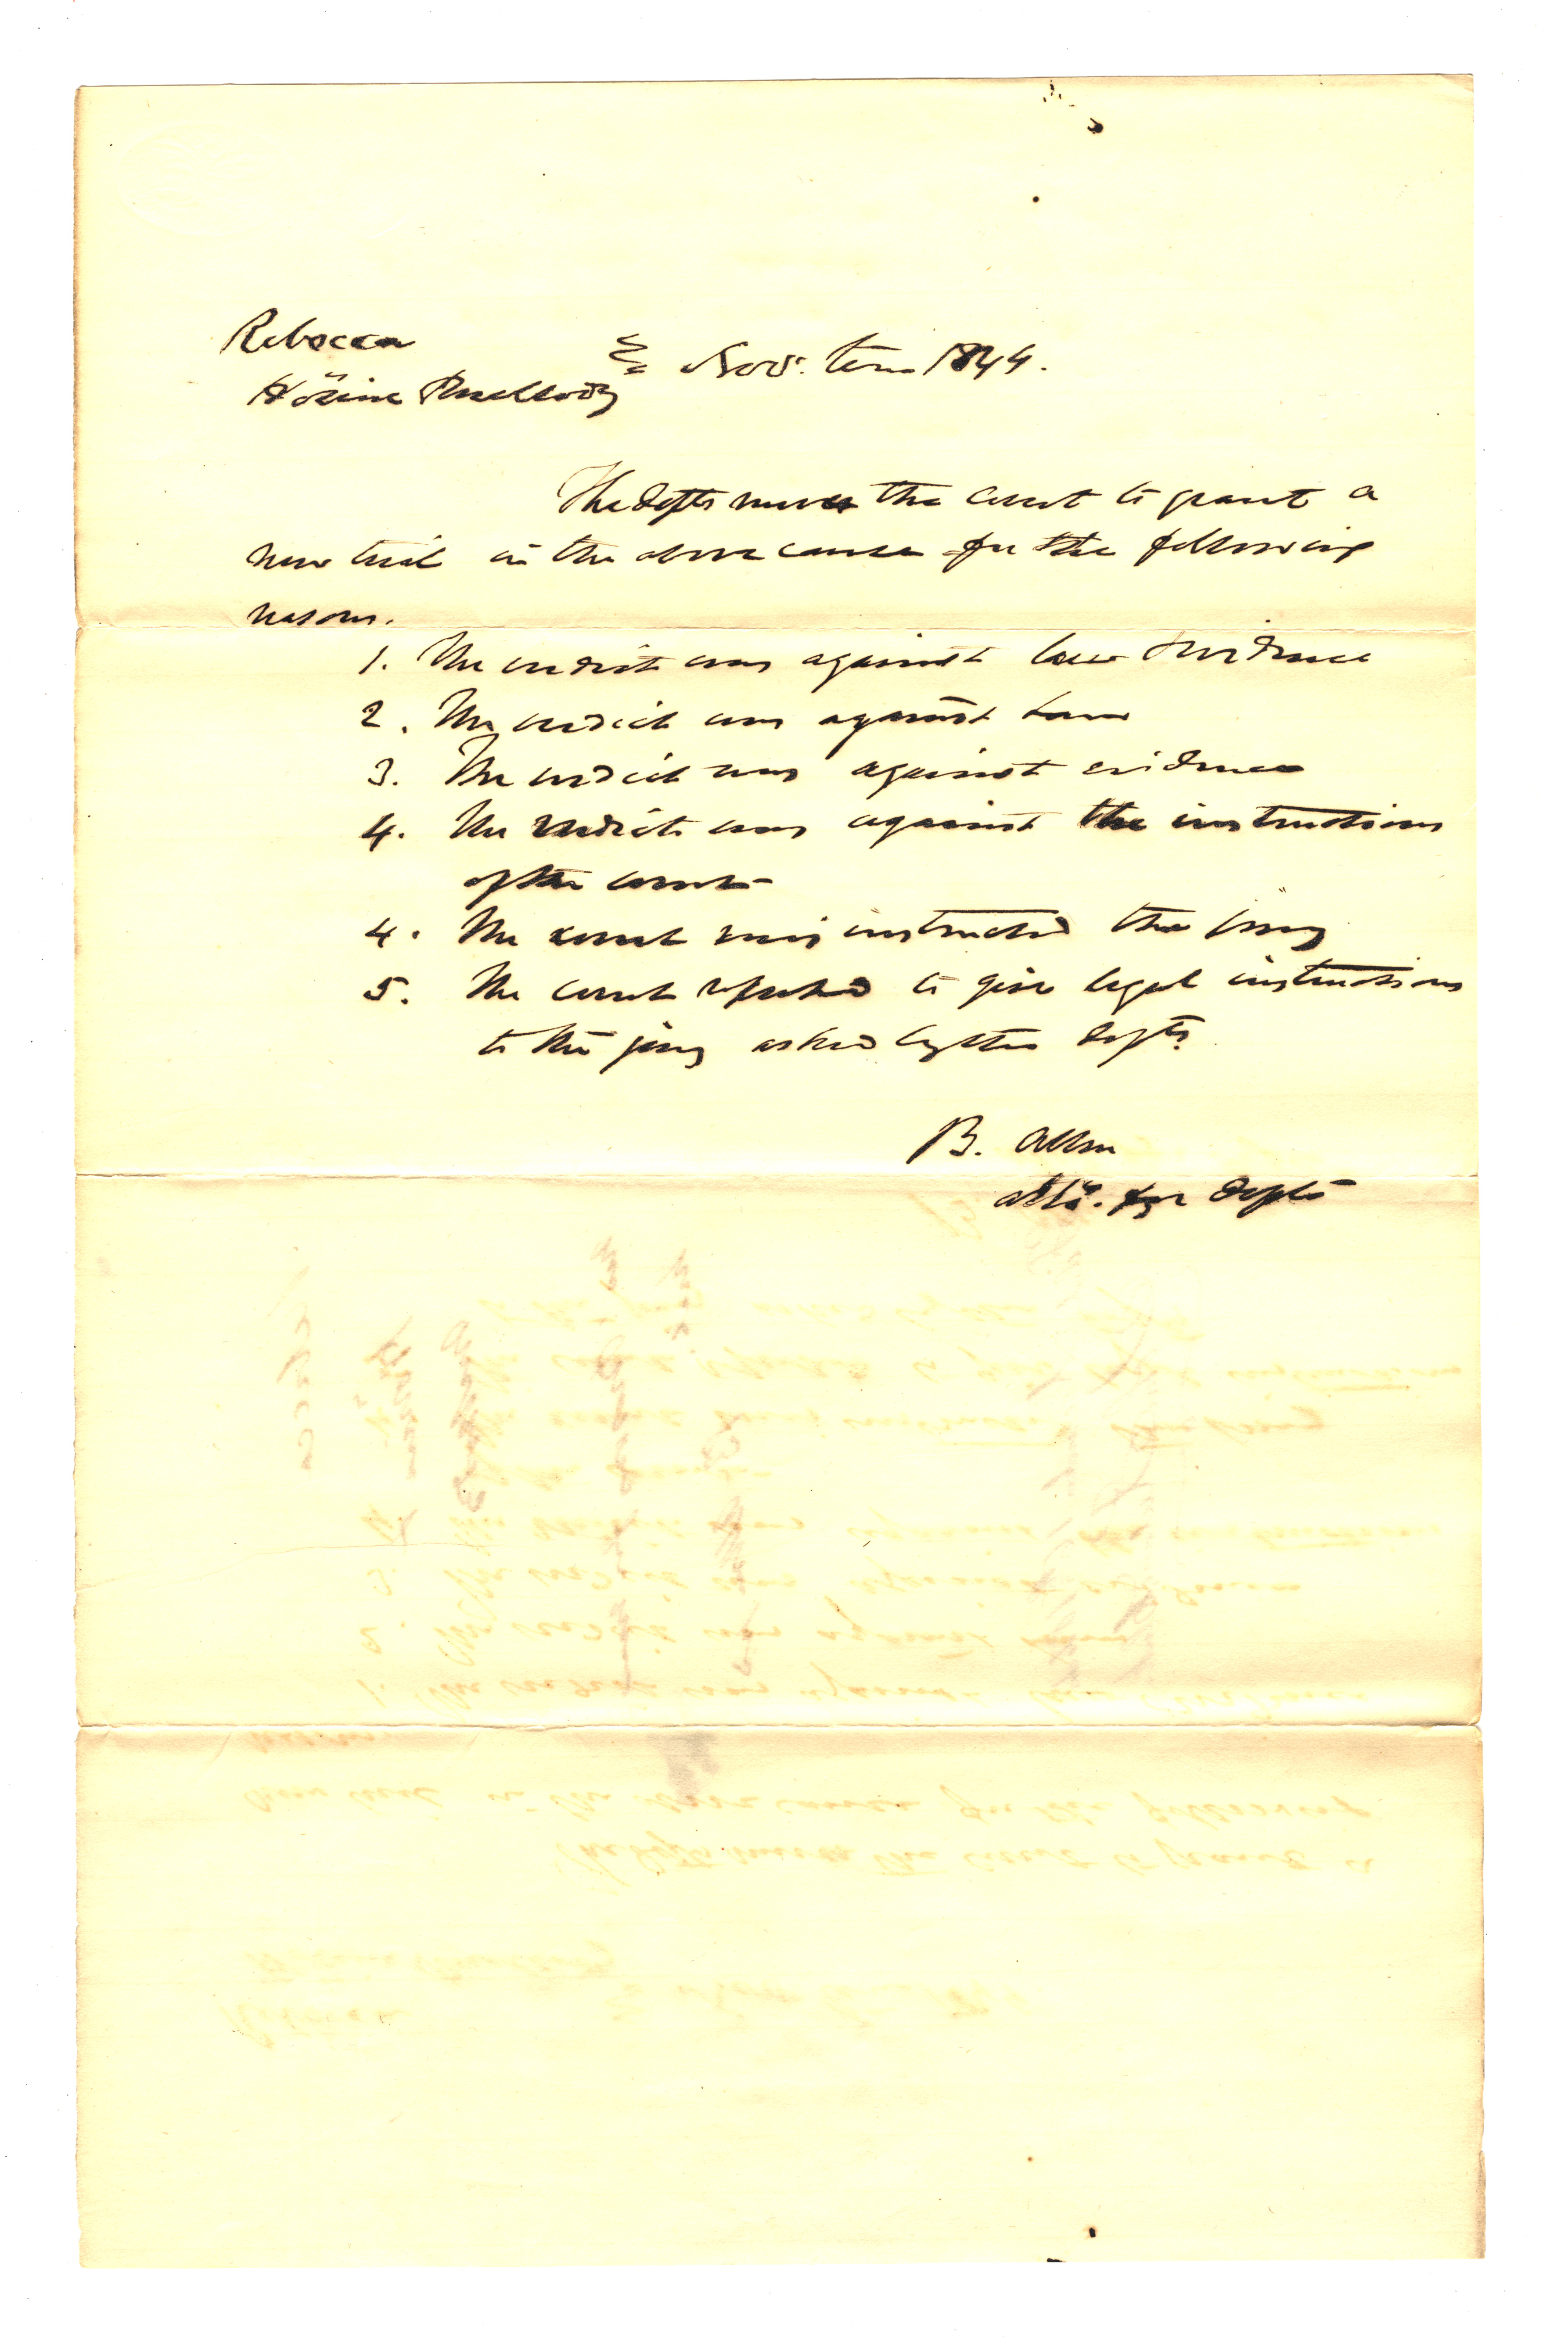 Rebecca
Nov. term 1844.
The defts moves the court to grant a
new trial in the above cause for the following
reasons.
1. The verdict was against law & evidence
2. The verdict was against law
3. The verdict was against evidence
4. The verdict was against the instructions
of the court
4. The court misinstructed the jury
5. The court refused to give legal instructions
to the jury asked by the defts.
B. Allen
atto. for defts